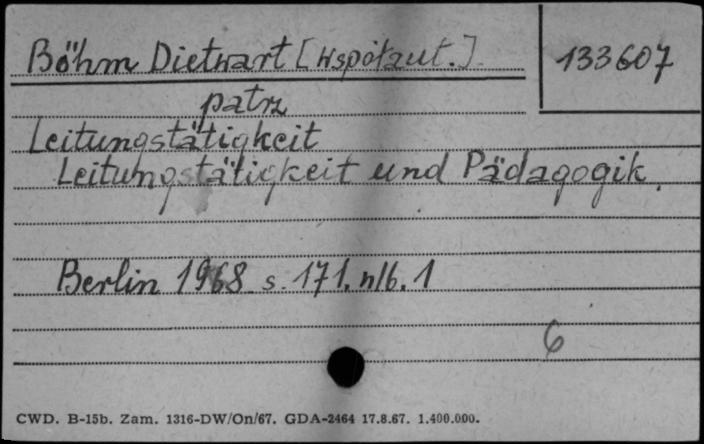 Böhm Dietwart [Współaut.]
133607
patrz
Leitungstätigkeit
Leitungstätigkeit und Pädagogik.
Berlin 1968 s. 171, nlb. 1
6
CWD. B-15b. Zam. 1316-DW/On/67. GDA-2464 17.8.67. 1.400.000.